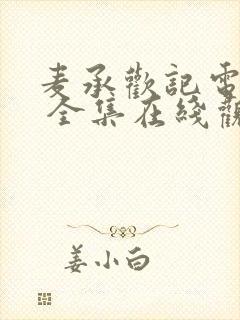 麦承歡記電
全集在綫觀
姜小白